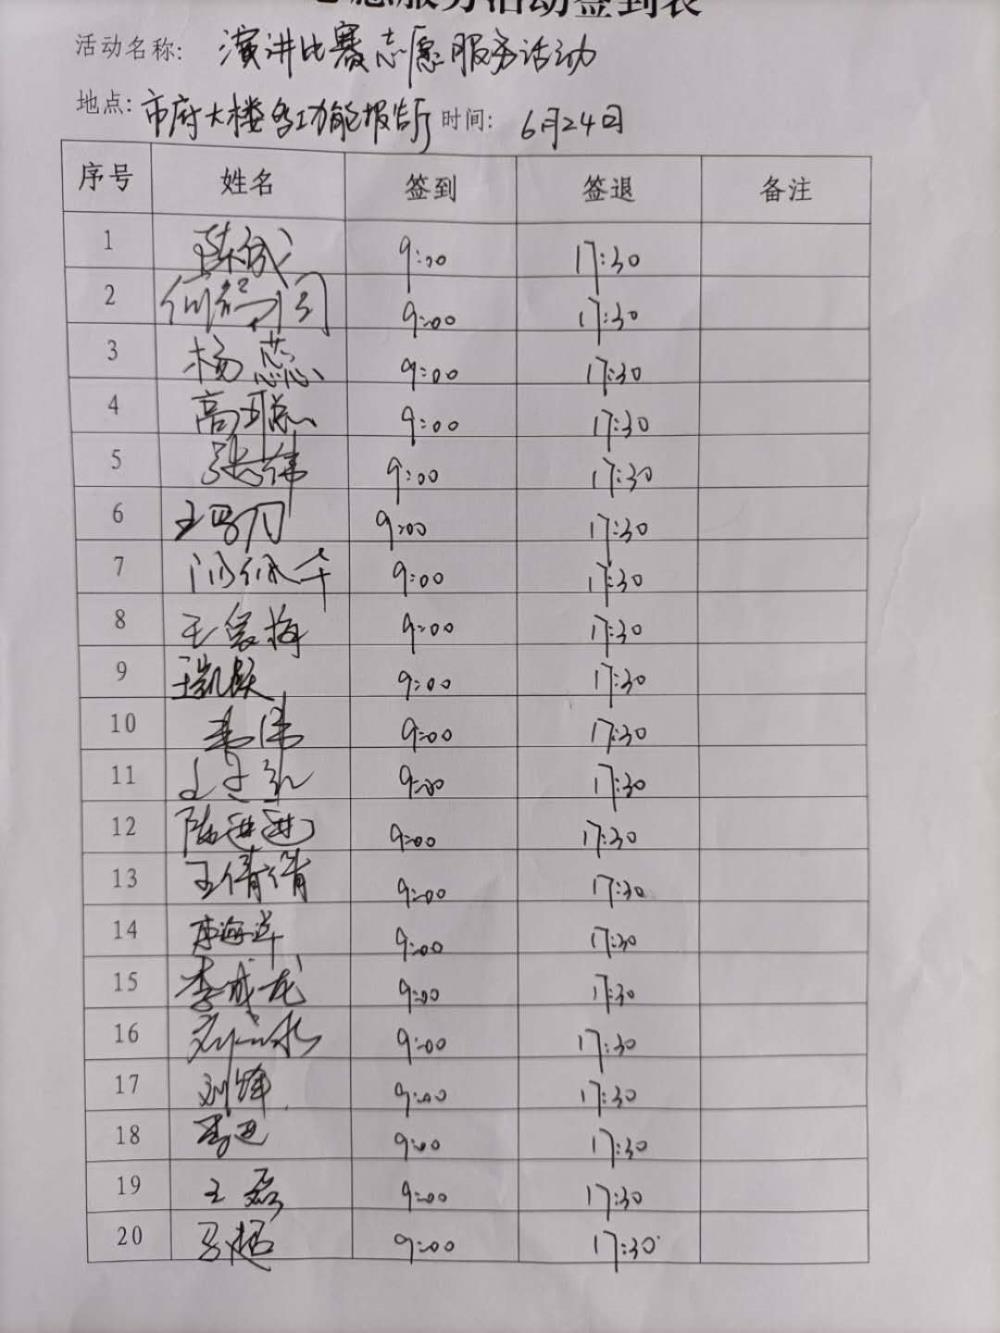 志愿服务活动签到表
活动名称: 演讲比赛志愿服务活动
地点: 市府大楼多功能报告厅 时间: 6月24日
序号 姓名 签到 签退 备注
1 9:00 17:30
2 9:00 17:30
3 杨蕊 9:00 17:30
4 高聪 9:00 17:30
5 张伟 9:00 17:30
6 9:00 17:30
7 9:00 17:30
8 9:00 17:30
9 王凯跃 9:00 17:30
10 韦伟 9:00 17:30
11 9:00 17:30
12 陆进进 9:00 17:30
13 王倩倩 9:00 17:30
14 唐海洋 9:00 17:30
15 李成龙 9:00 17:30
16 9:00 17:30
17 刘锋 9:00 17:30
18 9:00 17:30
19 王磊 9:00 17:30
20 马超 9:00 17:30